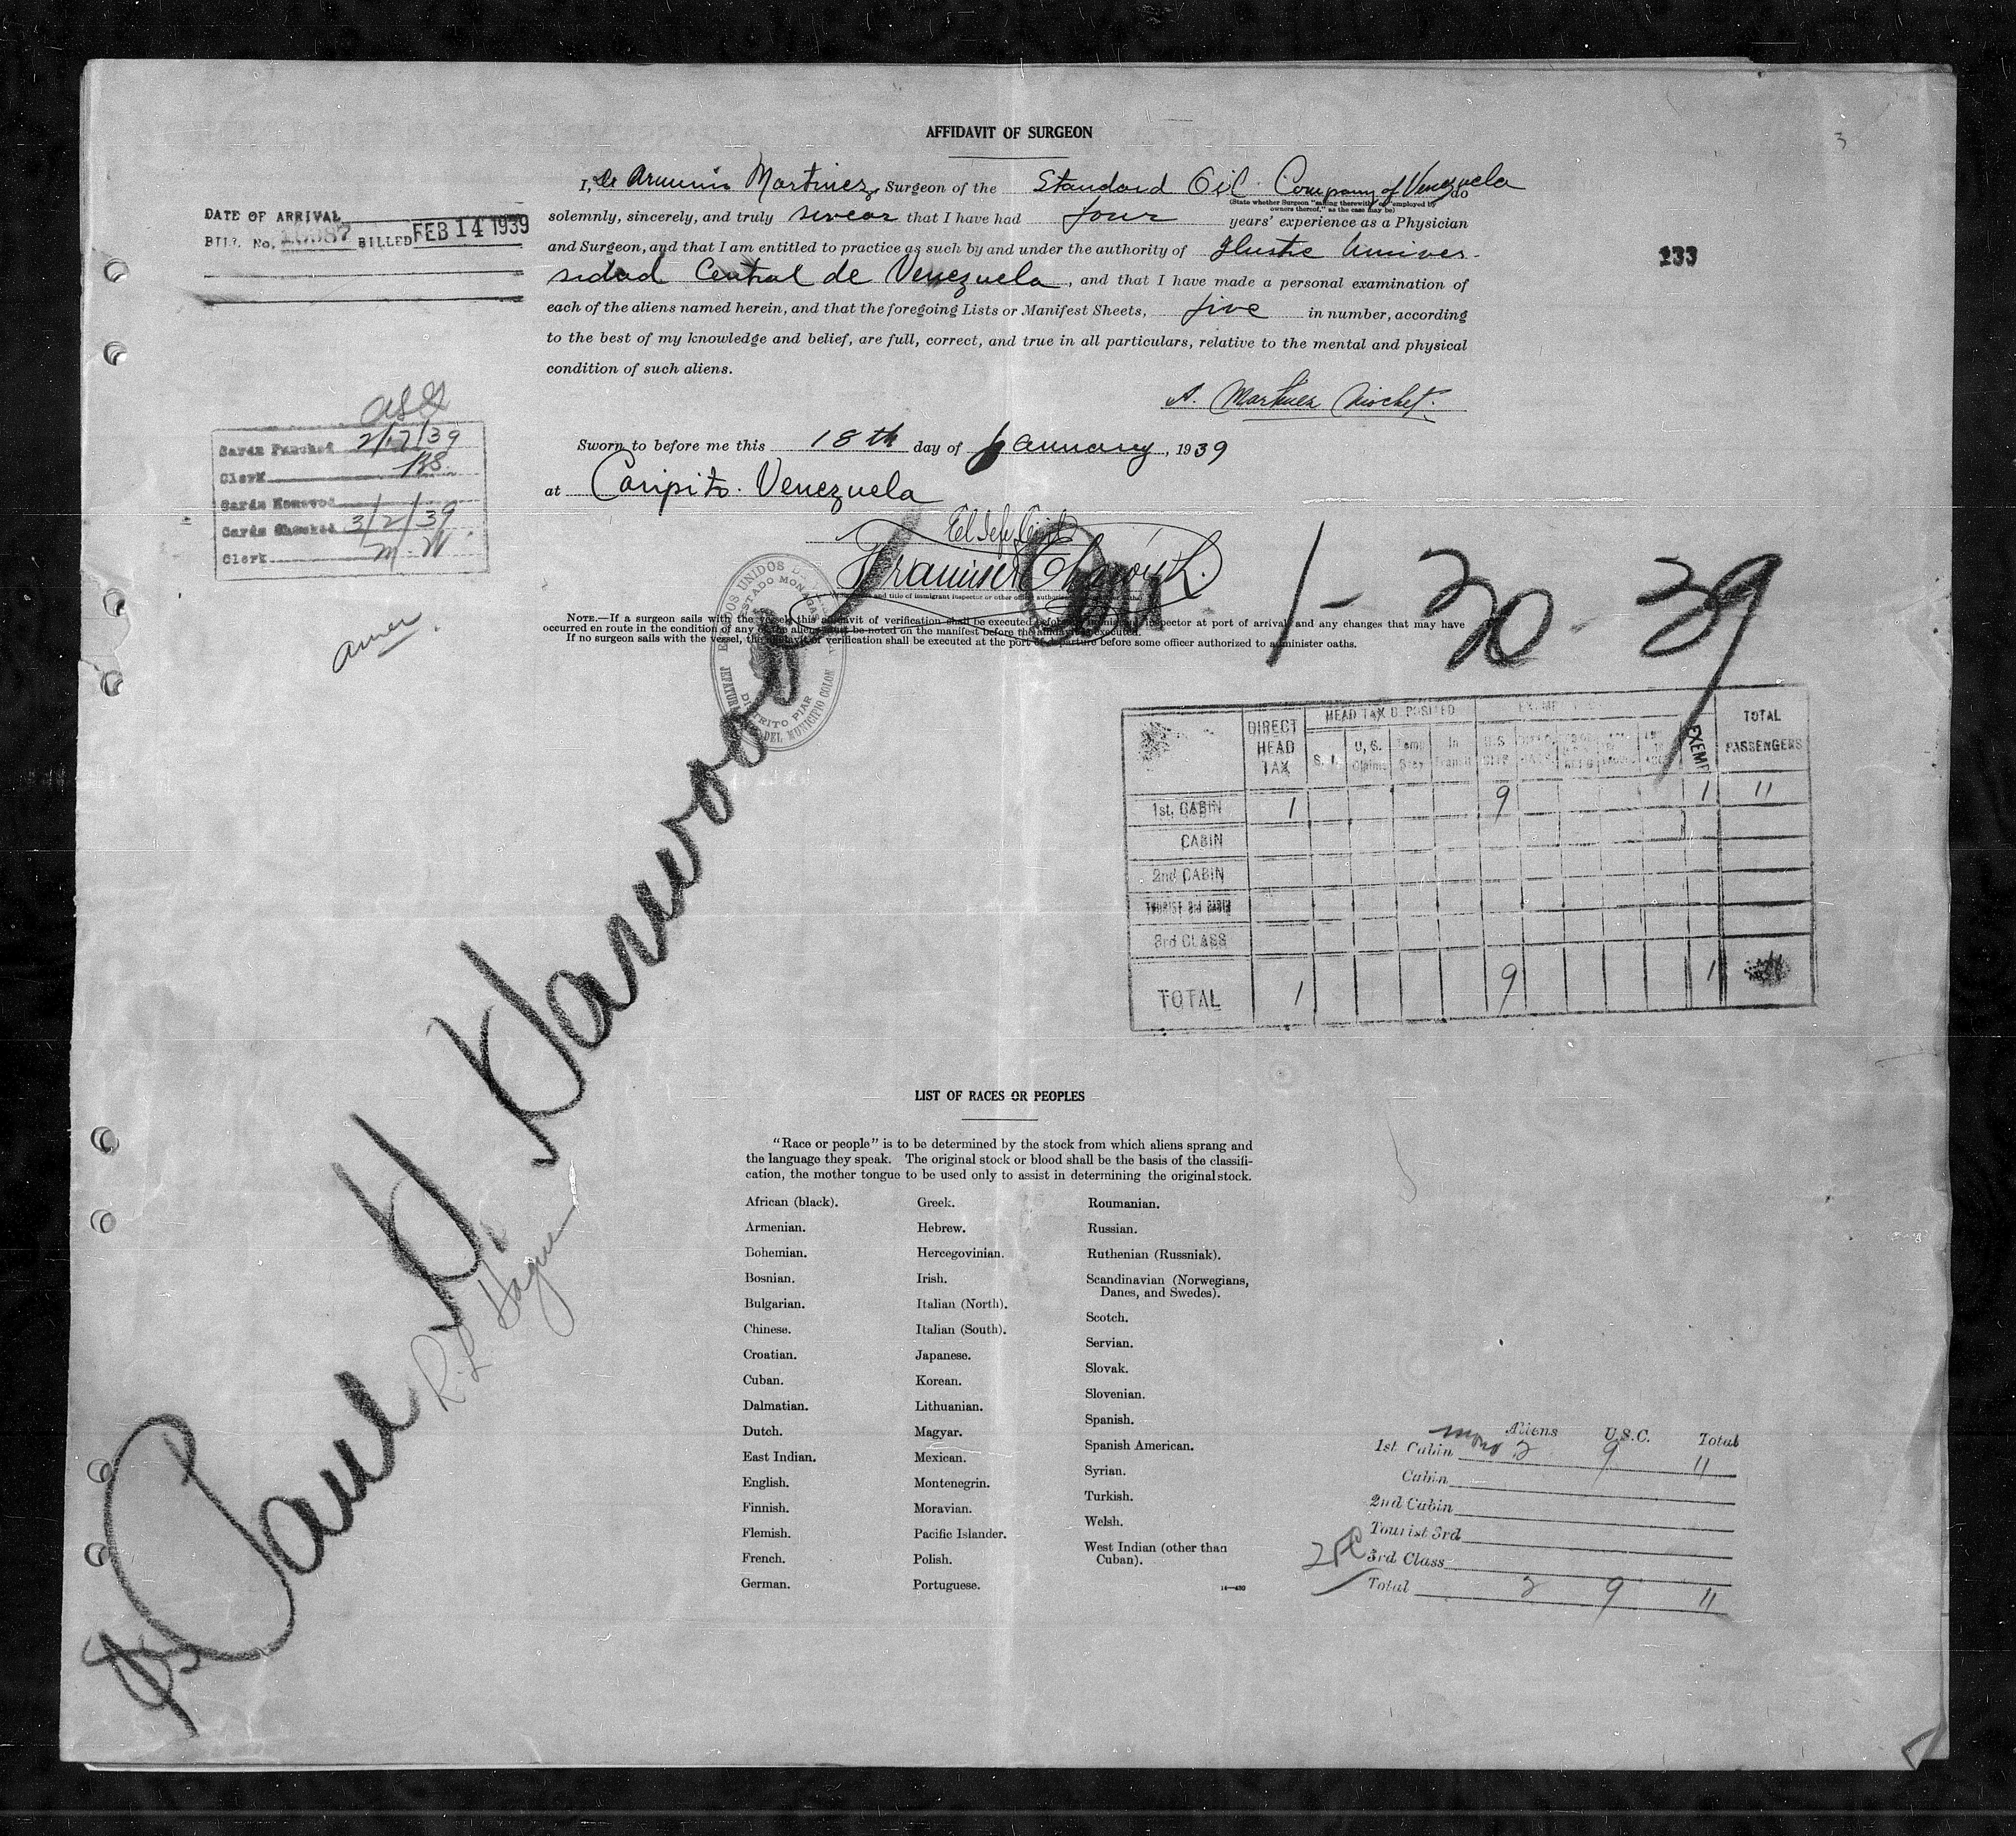 AFFIDAVIT OF SURGEON
3
I, Martinez, Surgeon of the Standard Oil Company of Venezuela do
(State whether Surgeon "sailing therewith" or "employed by owners thereof," as the case may be)
solemnly, sincerely, and truly swear that I have had four years' experience as a Physician
and Surgeon, and that I am entitled to practice as such by and under the authority of Ilustre Univer-
sidad Central de Venezuela, and that I have made a personal examination of
each of the aliens named herein, and that the foregoing Lists or Manifest Sheets, five in number, according
to the best of my knowledge and belief, are full, correct, and true in all particulars, relative to the mental and physical
condition of such aliens.
A. Martinez
Sworn to before me this 18th day of January, 1939
at Caripito. Venezuela
El Jefe Civil
NOTE.—If a surgeon sails with the vessel, this affidavit of verification shall be executed before an immigrant inspector at port of arrival and any changes that may have
occurred en route in the condition of any of the aliens must be noted on the manifest before the affidavit is executed.
If no surgeon sails with the vessel, the affidavit of verification shall be executed at the port of departure before some officer authorized to administer oaths.
DATE OF ARRIVAL
BILL No. BILLED FEB 14 1939
233
Cards Punched 2/17/39
Clerk
Cards
Cards Checked 3/2/39
Clerk M.W.
1-30-39
Paul H Harwood
R. L. Hague
DIRECT HEAD TAX HEAD TAX DEPOSITED EXEMPT TOTAL PASSENGERS
S. I. U. S. Claims Temp Stay In Transit U.S. CITS
1st. CABIN 1 9 1 11
CABIN
2nd CABIN
TOURIST 3rd CABIN
3rd CLASS
TOTAL 1 9 1
LIST OF RACES OR PEOPLES
"Race or people" is to be determined by the stock from which aliens sprang and
the language they speak. The original stock or blood shall be the basis of the classifi-
cation, the mother tongue to be used only to assist in determining the original stock.
African (black).
Armenian.
Bohemian.
Bosnian.
Bulgarian.
Chinese.
Croatian.
Cuban.
Dalmatian.
Dutch.
East Indian.
English.
Finnish.
Flemish.
French.
German.
Greek.
Hebrew.
Hercegovinian.
Irish.
Italian (North).
Italian (South).
Japanese.
Korean.
Lithuanian.
Magyar.
Mexican.
Montenegrin.
Moravian.
Pacific Islander.
Polish.
Portuguese.
Roumanian.
Russian.
Ruthenian (Russniak).
Scandinavian (Norwegians,
Danes, and Swedes).
Scotch.
Servian.
Slovak.
Slovenian.
Spanish.
Spanish American.
Syrian.
Turkish.
Welsh.
West Indian (other than
Cuban).
Aliens U.S.C. Total
1st Cabin 2 9 11
Cabin
2nd Cabin
Tourist 3rd
3rd Class
Total 2 9 11